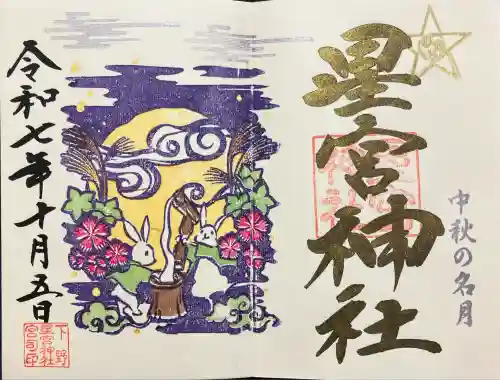 星宮神社
中秋の名月
令和七年十月五日
下野
星宮神社
宮司印